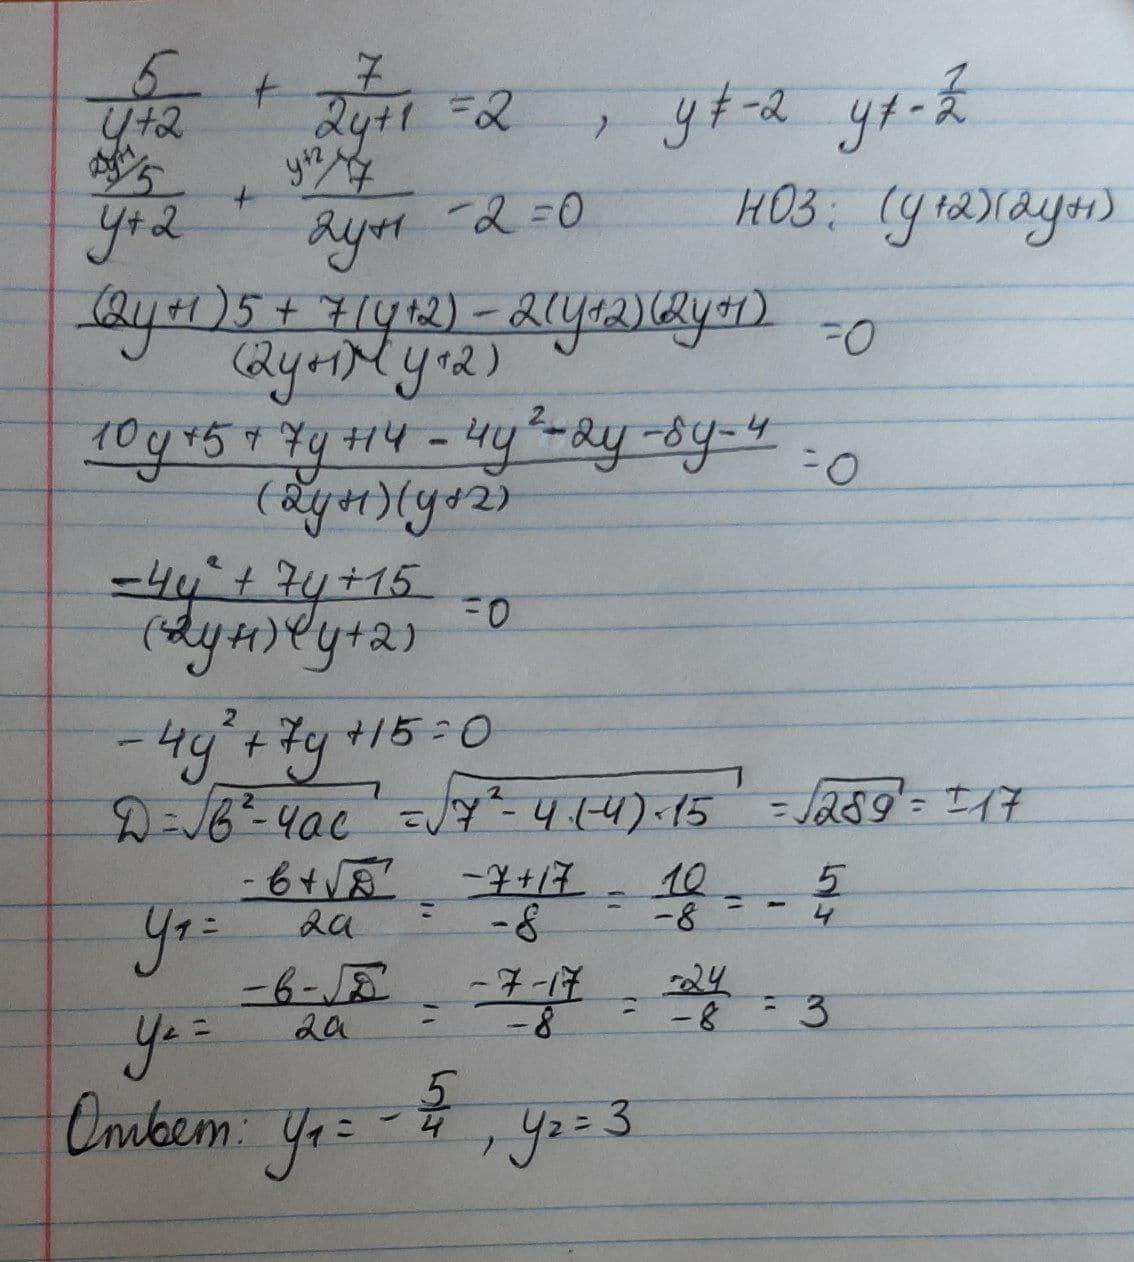 5/(y+2) + 7/(2y+1) = 2 , y ≠ -2 y ≠ -1/2
2y+1/5/(y+2) + y+2/7/(2y+1) - 2 = 0 НОЗ: (y+2)(2y+1)
((2y+1)5 + 7(y+2) - 2(y+2)(2y+1))/((2y+1)(y+2)) = 0
(10y+5+7y+14-4y²-2y-8y-4)/((2y+1)(y+2)) = 0
(-4y²+7y+15)/((2y+1)(y+2)) = 0
-4y²+7y+15=0
D=√(b²-4ac) = √(7²-4·(-4)·15) = √289 = ±17
y₁ = (-b+√D)/2a = (-7+17)/-8 = 10/-8 = -5/4
y₂ = (-b-√D)/2a = (-7-17)/-8 = -24/-8 = 3
Ответ: y₁ = -5/4, y₂ = 3